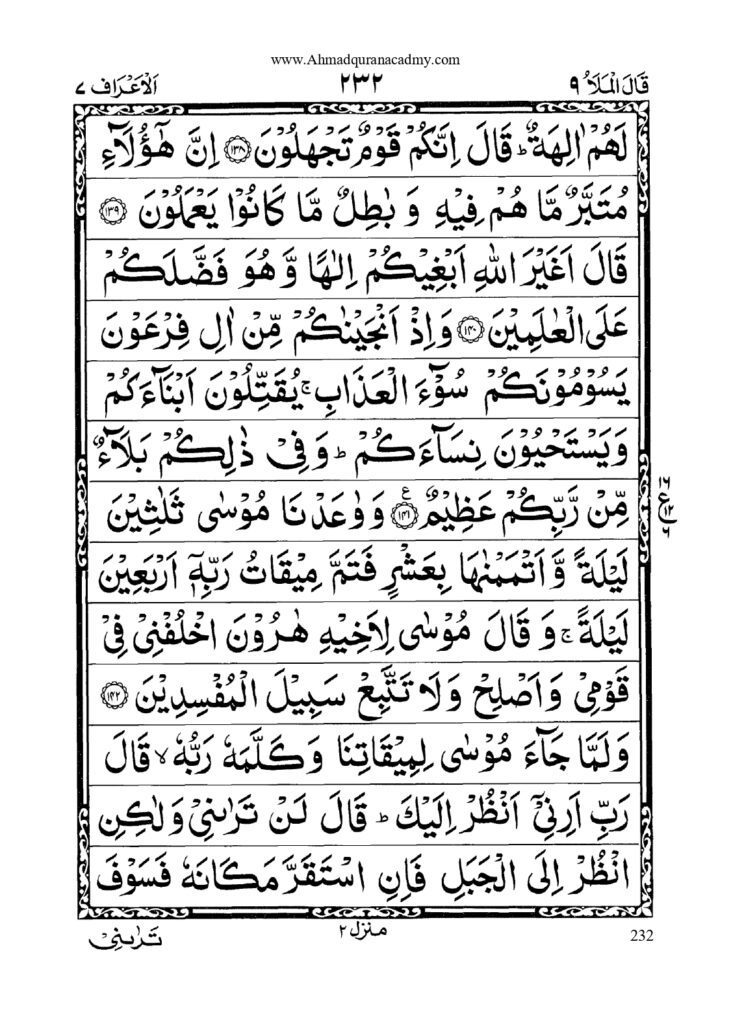 www.Ahmadquranacadmy.com
قَالَ الْمَلَاُ ۹ ۲۳۲ اَلْاَعْرَاف ۷
لَهُمْ اٰلِهَةٌ ؕ قَالَ اِنَّكُمْ قَوْمٌ تَجْهَلُوْنَ ﴿۱۳۸﴾ اِنَّ هٰۤؤُلَآءِ
مُتَبَّرٌ مَّا هُمْ فِيْهِ وَ بٰطِلٌ مَّا كَانُوْا يَعْمَلُوْنَ ﴿۱۳۹﴾
قَالَ اَغَيْرَ اللّٰهِ اَبْغِيْكُمْ اِلٰهًا وَّ هُوَ فَضَّلَكُمْ
عَلَى الْعٰلَمِيْنَ ﴿۱۴۰﴾ وَ اِذْ اَنْجَيْنٰكُمْ مِّنْ اٰلِ فِرْعَوْنَ
يَسُوْمُوْنَكُمْ سُوْٓءَ الْعَذَابِ ۚ يُقَتِّلُوْنَ اَبْنَآءَكُمْ
وَيَسْتَحْيُوْنَ نِسَآءَكُمْ ؕ وَ فِيْ ذٰلِكُمْ بَلَآءٌ
مِّنْ رَّبِّكُمْ عَظِيْمٌ ﴿۱۴۱﴾ ع وَ وٰعَدْنَا مُوْسٰى ثَلٰثِيْنَ
۱۶ ع ۱۲ ۶
لَيْلَةً وَّ اَتْمَمْنٰهَا بِعَشْرٍ فَتَمَّ مِيْقَاتُ رَبِّهٖۤ اَرْبَعِيْنَ
لَيْلَةً ۚ وَ قَالَ مُوْسٰى لِاَخِيْهِ هٰرُوْنَ اخْلُفْنِيْ فِيْ
قَوْمِيْ وَ اَصْلِحْ وَ لَا تَتَّبِعْ سَبِيْلَ الْمُفْسِدِيْنَ ﴿۱۴۲﴾
وَ لَمَّا جَآءَ مُوْسٰى لِمِيْقَاتِنَا وَ كَلَّمَهٗ رَبُّهٗ ۙ قَالَ
رَبِّ اَرِنِيْۤ اَنْظُرْ اِلَيْكَ ؕ قَالَ لَنْ تَرٰىنِيْ وَ لٰكِنِ
انْظُرْ اِلَى الْجَبَلِ فَاِنِ اسْتَقَرَّ مَكَانَهٗ فَسَوْفَ
تَرٰىنِيْ منزل ۲ 232